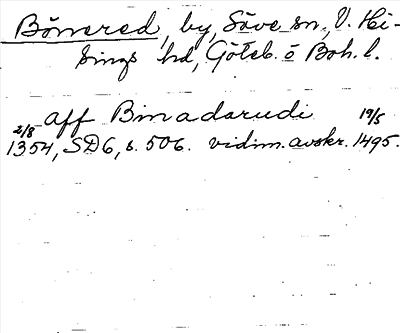 Bönered, by, Säve sn, V. Hi-
sings hd, Göteb. o Boh. l.
aff Binadarudi 19/5
2/8 1354, SD6, s. 506. vidim. avskr. 1495.